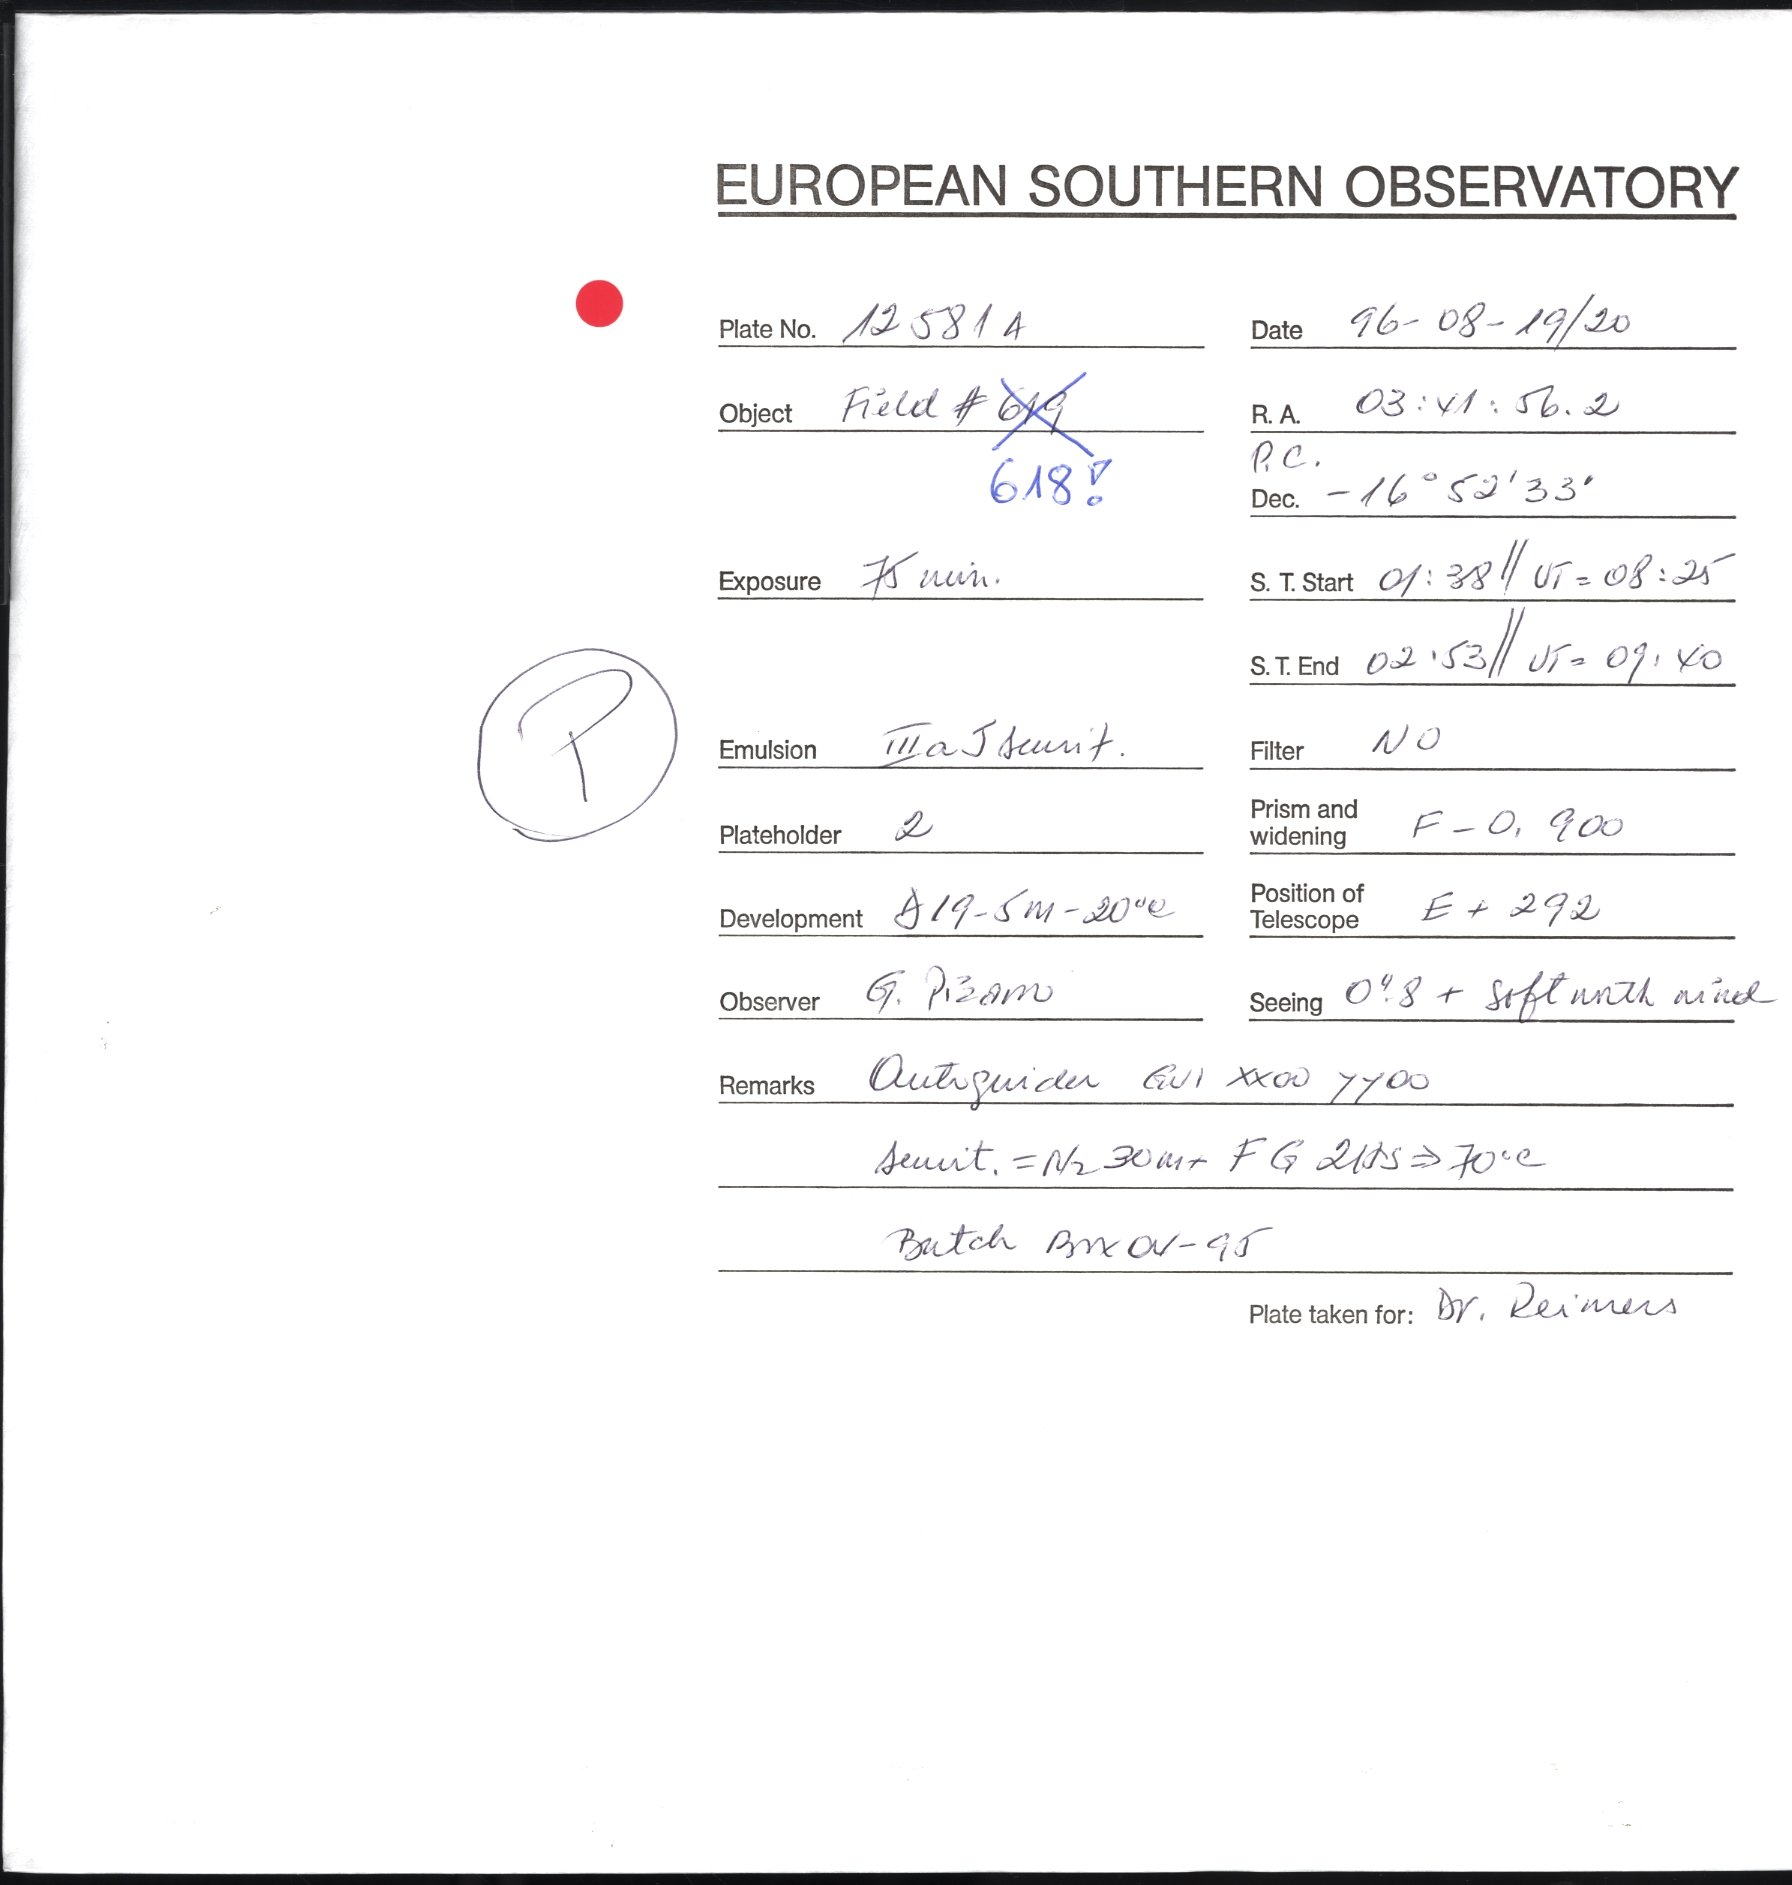 EUROPEAN SOUTHERN OBSERVATORY
Plate No. 12581A
Date 96-08-19/20
Object Field # 619
618!
R. A. 03:41:56.2
P.C.
Dec. -16° 52' 33"
Exposure 75 min.
S. T. Start 01:38 // UT = 08:25
S. T. End 02:53 // UT = 09:40
P
Emulsion IIIaJ sensit.
Filter NO
Plateholder 2
Prism and widening F - 0.900
Development D19-5m-20°C
Position of Telescope E + 292
Observer G. Pizarro
Seeing 0".8 + soft north wind
Remarks Autoguider GV1 XX00 YY00
sensit. = N2 30m + FG 2HS => 70°C
Batch
Plate taken for: Dr. Reimers